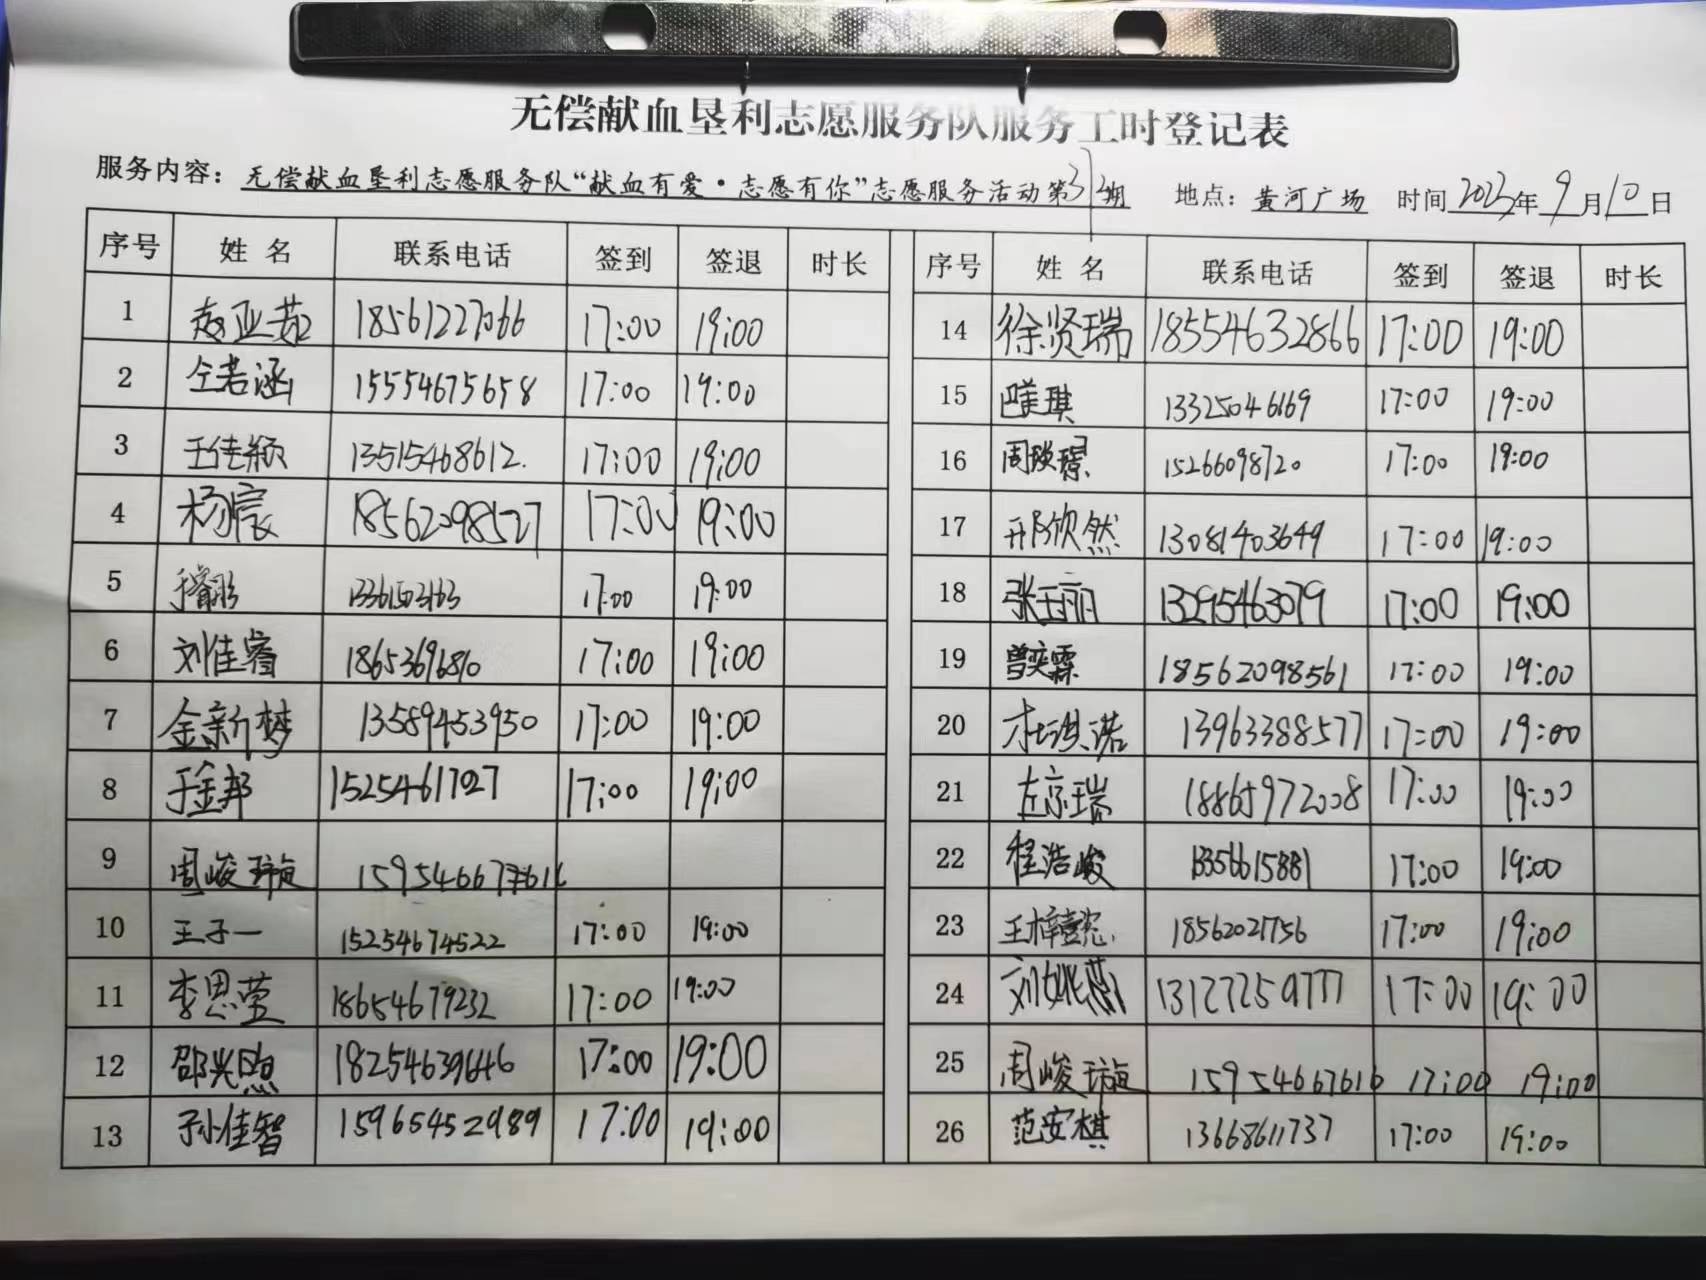 无偿献血垦利志愿服务队服务工时登记表
服务内容：无偿献血垦利志愿服务队“献血有爱·志愿有你”志愿服务活动第312期 地点：黄河广场 时间2023年9月10日
序号 姓名 联系电话 签到 签退 时长 序号 姓名 联系电话 签到 签退 时长
1 赵亚茹 18561227066 17:00 19:00 14 徐贤瑞 18554632866 17:00 19:00
2 仝若涵 15554675658 17:00 19:00 15 琪 13325046169 17:00 19:00
3 王佳颖 13515468612. 17:00 19:00 16 周瑛璟 15266098720 17:00 19:00
4 杨宸 18562098527 17:00 19:00 17 邢欣然 13081403649 17:00 19:00
5 于睿彤 13361503163 17:00 19:00 18 张玉丽 13295463079 17:00 19:00
6 刘佳睿 17:00 19:00 19 曾奕霖 18562098561 17:00 19:00
7 金新梦 13589453950 17:00 19:00 20 杜淇诺 13963388577 17:00 19:00
8 于金邦 15254617027 17:00 19:00 21 左京瑞 18865972008 17:00 19:00
9 周峻璇 22 程浩峻 13356615881 17:00 19:00
10 王子一 15254674522 17:00 19:00 23 王梓懿 18562021756 17:00 19:00
11 李思莹 18654679232 17:00 19:00 24 刘姚燕 13127259777 17:00 19:00
12 邵兴煦 18254639646 17:00 19:00 25 周峻璇 15954667616 17:00 19:00
13 孙佳智 15965452989 17:00 19:00 26 范安棋 13668611737 17:00 19:00